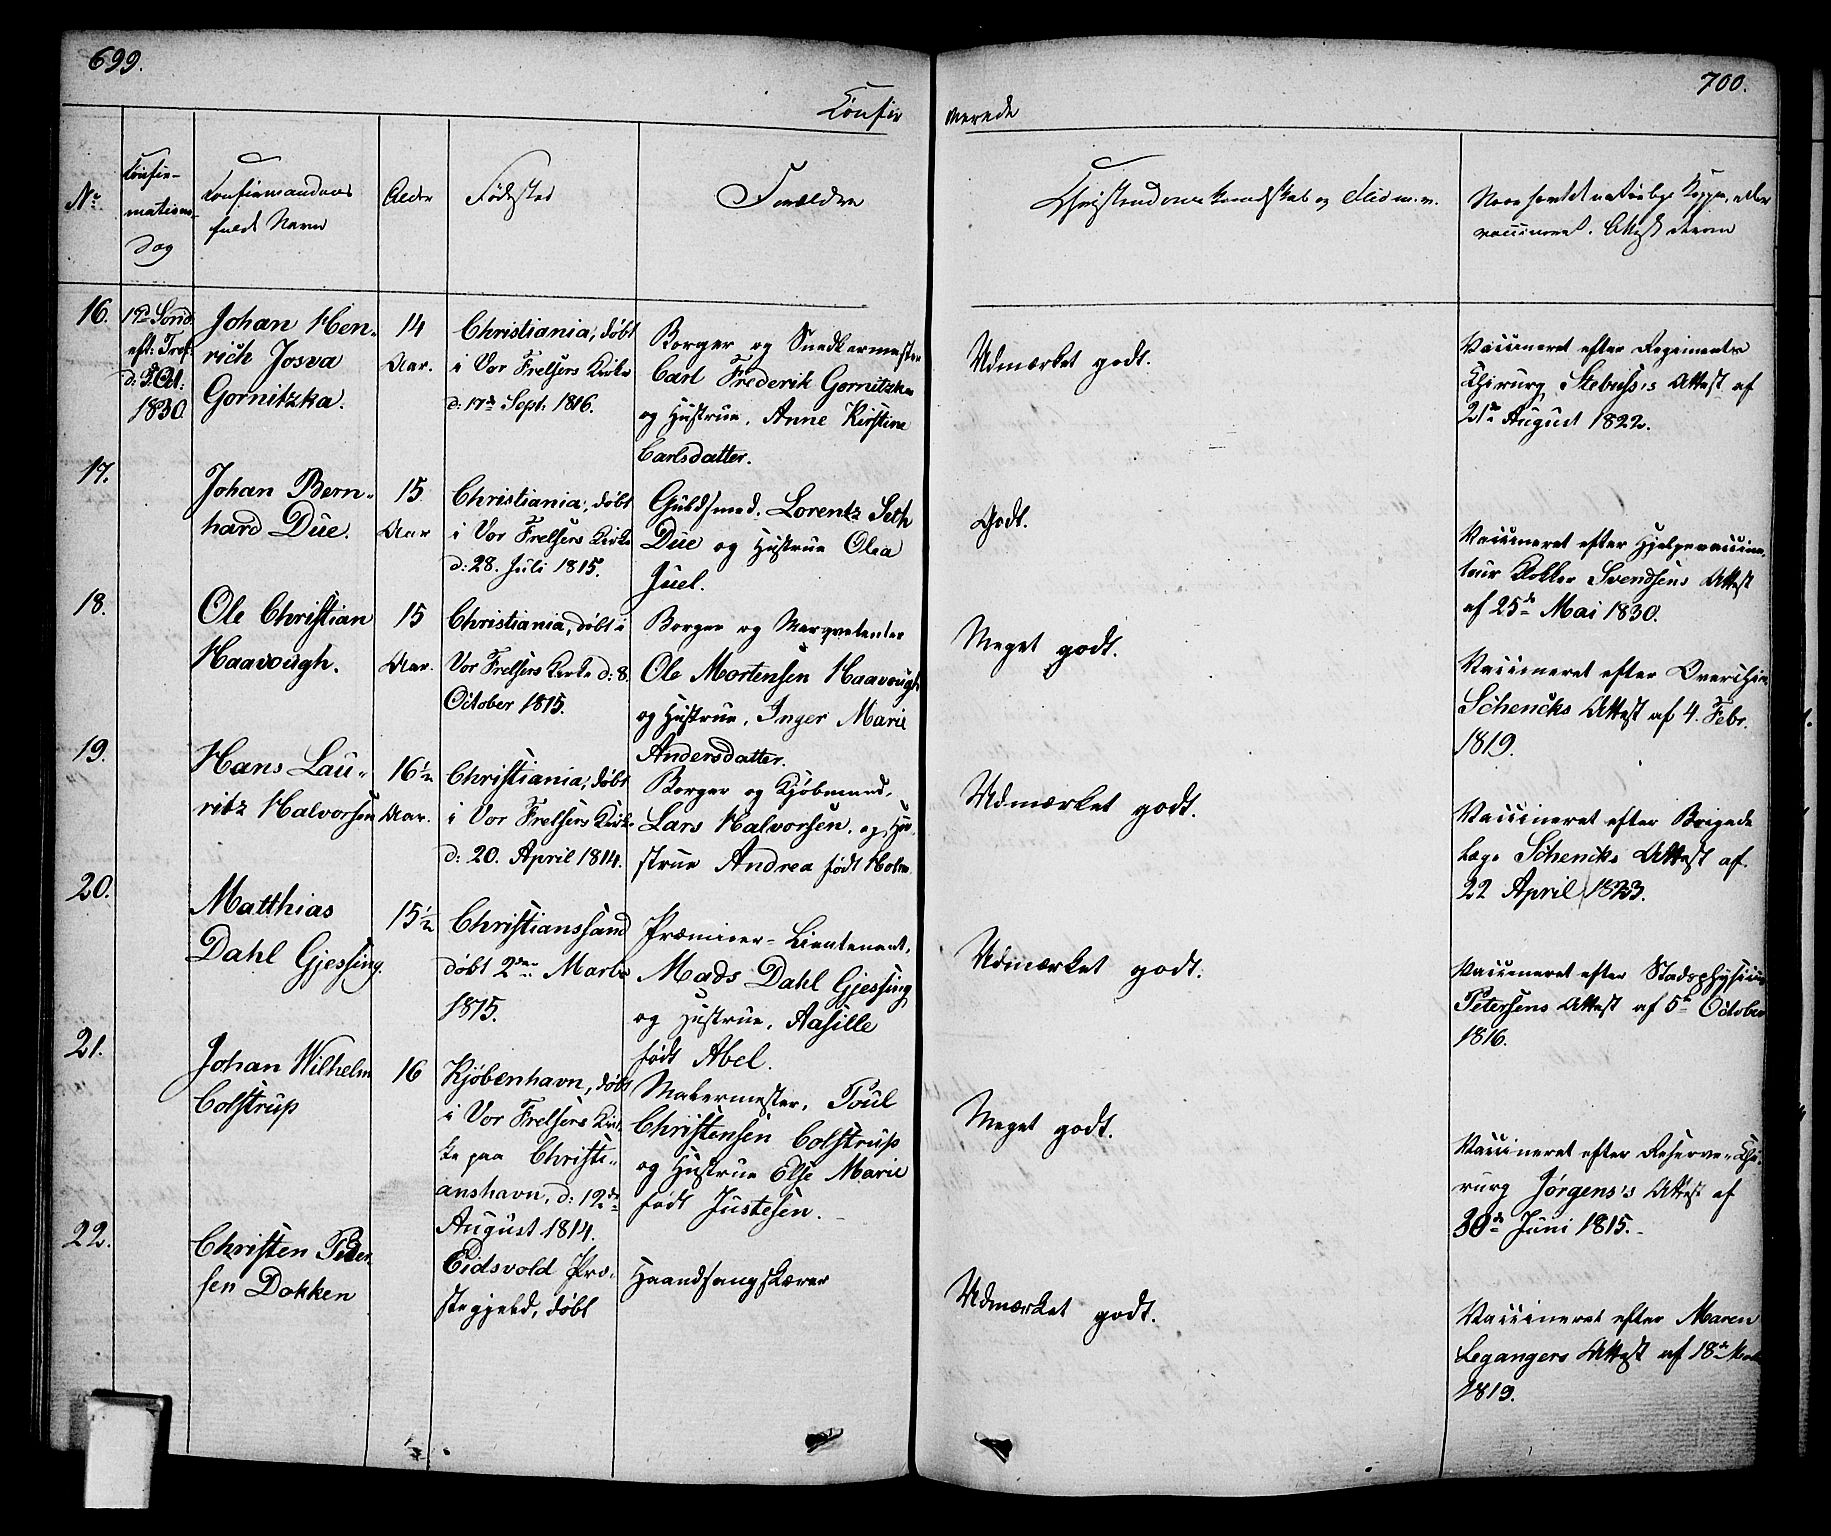 699.
700.
Confir
merede
No
Confir-
mations-
dag
Confirmandens
fulde Navn
Alder
Fødested
Forældre
Christendoms kundskab og Flid m. v.
Have havt de naturlige Kopper, eller
vaccineret. Attest derom
16.
19de Sønd.
eft: Tref.
Oct:
1830.
Johan Hen-
rich Josva
Gornitzka.
14
Aar.
Christiania, døbt
i Vor Frelsers Kirke
d: 17de Sept: 1816.
Borger og Snedkermester
Carl Frederik Gornitzka
og Hustrue, Anne Kirstine
Carlsdatter.
Udmærket godt.
Vaccineret efter Regiments
Chirurg Stebuss's Attest af
21de August 1822.
17.
Johan Bern-
hard Due.
15
Aar
Christiania, døbt
i Vor Frelsers Kirke
d: 28. Juli 1815.
Guldsmed. Lorentz Seth
Due og Hustrue Olea
Juel.
Godt.
Vaccineret efter Hjelpevaccina-
teur Klokker Svendsens Attest
af 25de Mai 1830.
18.
Ole Christian
Haavough.
15
Aar.
Christiania, døbt i
Vor Frelsers Kirke d: 8.
October 1815.
Borger og Marqvetenter
Ole Mortensen Haavough
og Hustrue, Inger Marie
Andersdatter.
Meget godt.
Vaccineret efter Overchir.
Schencks Attest af 4. Febr.
1819.
19.
Hans Lau-
ritz Halvorsen
16 1/2
Aar.
Christiania, døbt
i Vor Frelsers Kirke
d: 20. April 1814.
Borger og Kjøbmand,
Lars Halvorsen, og Hu-
strue Andrea født Holm.
Udmærket godt.
Vaccineret efter Brigade
Læge Schencks Attest af
22 April 1823.
20.
Matthias
Dahl Gjessing.
15 1/2
Christianssand
døbt 2den Marts
1815.
Præmier-Lieutenant,
Mads Dahl Gjessing
og Hustrue, Aasille
født Abel.
Udmærket godt.
Vaccineret efter Stadsphysicus
Petersens Attest af 5te October
1816.
21.
Johan Wilhelm
Colstrup
16
Kjøbenhavn, døbt
i Vor Frelsers Kir-
ke paa Christi-
anshavn, d: 12de
August 1814.
Malermester, Poul
Christensen Colstrup
og Hustrue Else Marie
født Justesen.
Meget godt.
Vaccineret efter Reserve-Chi-
rurg Jørgens's Attest af
30de Juni 1815.
22.
Christen Peder-
sen Dokken
Eidsvold Præ-
stegjeld, døbt
Haandlangskarer
Udmærket godt.
Vaccineret efter Maren
Legangers Attest af 18de
1819.